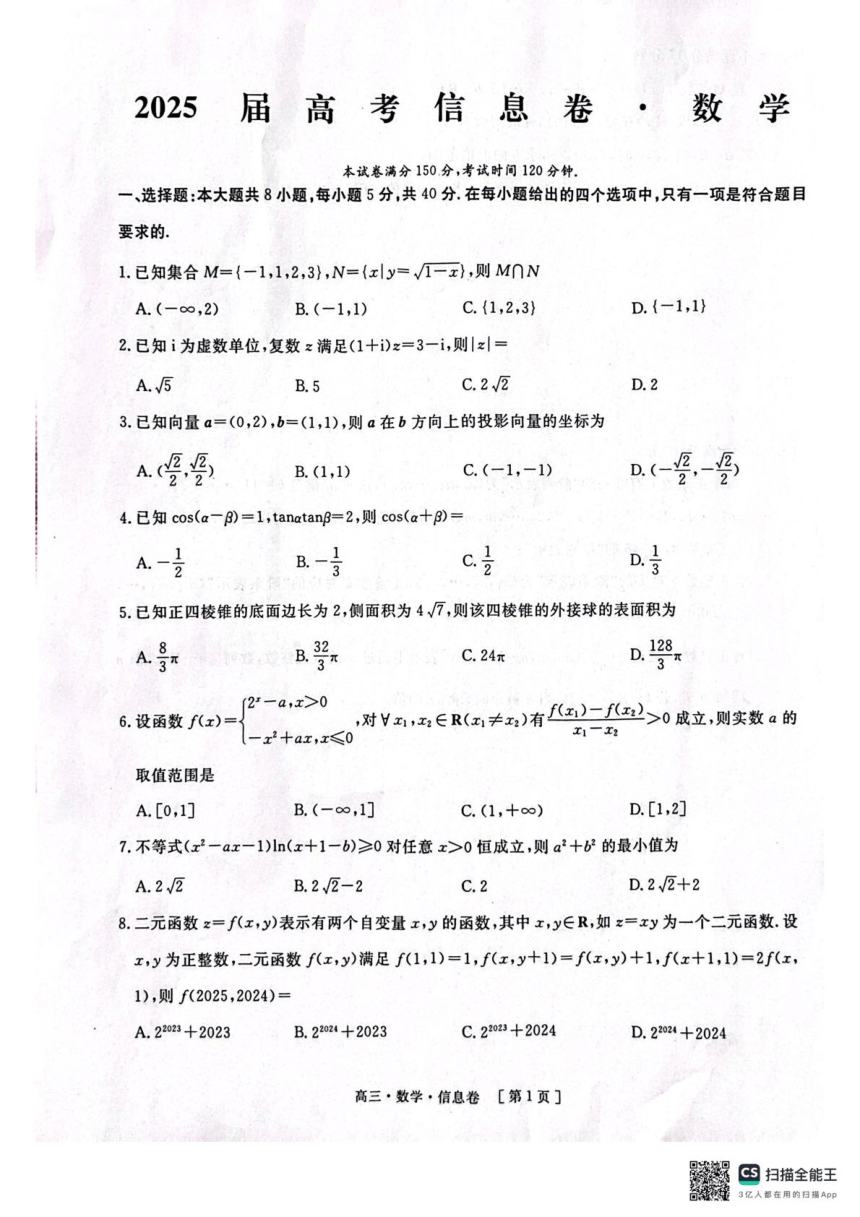 2025 届高考信息卷·数学
本试卷满分 150 分,考试时间 120 分钟.
一、选择题:本大题共 8 小题,每小题 5 分,共 40 分.在每小题给出的四个选项中,只有一项是符合题目
要求的.
1.已知集合 M={-1,1,2,3},N={x|y=√(1-x)},则 M∩N
A.(-∞,2) B.(-1,1) C.{1,2,3} D.{-1,1}
2.已知 i 为虚数单位,复数 z 满足(1+i)z=3-i,则|z|=
A.√5 B.5 C.2√2 D.2
3.已知向量 a=(0,2),b=(1,1),则 a 在 b 方向上的投影向量的坐标为
A.(√2/2,√2/2) B.(1,1) C.(-1,-1) D.(-√2/2,-√2/2)
4.已知 cos(α-β)=1,tanαtanβ=2,则 cos(α+β)=
A.-1/2 B.-1/3 C.1/2 D.1/3
5.已知正四棱锥的底面边长为 2,侧面积为 4√7,则该四棱锥的外接球的表面积为
A.8/3π B.32/3π C.24π D.128/3π
6.设函数 f(x)={2ˣ-a,x>0 -x²+ax,x≤0 ,对∀x₁,x₂∈R(x₁≠x₂)有 (f(x₁)-f(x₂))/(x₁-x₂)>0 成立,则实数 a 的
取值范围是
A.[0,1] B.(-∞,1] C.(1,+∞) D.[1,2]
7.不等式(x²-ax-1)ln(x+1-b)≥0 对任意 x>0 恒成立,则 a²+b² 的最小值为
A.2√2 B.2√2-2 C.2 D.2√2+2
8.二元函数 z=f(x,y)表示有两个自变量 x,y 的函数,其中 x,y∈R,如 z=xy 为一个二元函数.设
x,y 为正整数,二元函数 f(x,y)满足 f(1,1)=1,f(x,y+1)=f(x,y)+1,f(x+1,1)=2f(x,
1),则 f(2025,2024)=
A.2²⁰²³+2023 B.2²⁰²⁴+2023 C.2²⁰²³+2024 D.2²⁰²⁴+2024
高三·数学·信息卷 [第 1 页]
CS 扫描全能王
3亿人都在用的扫描App